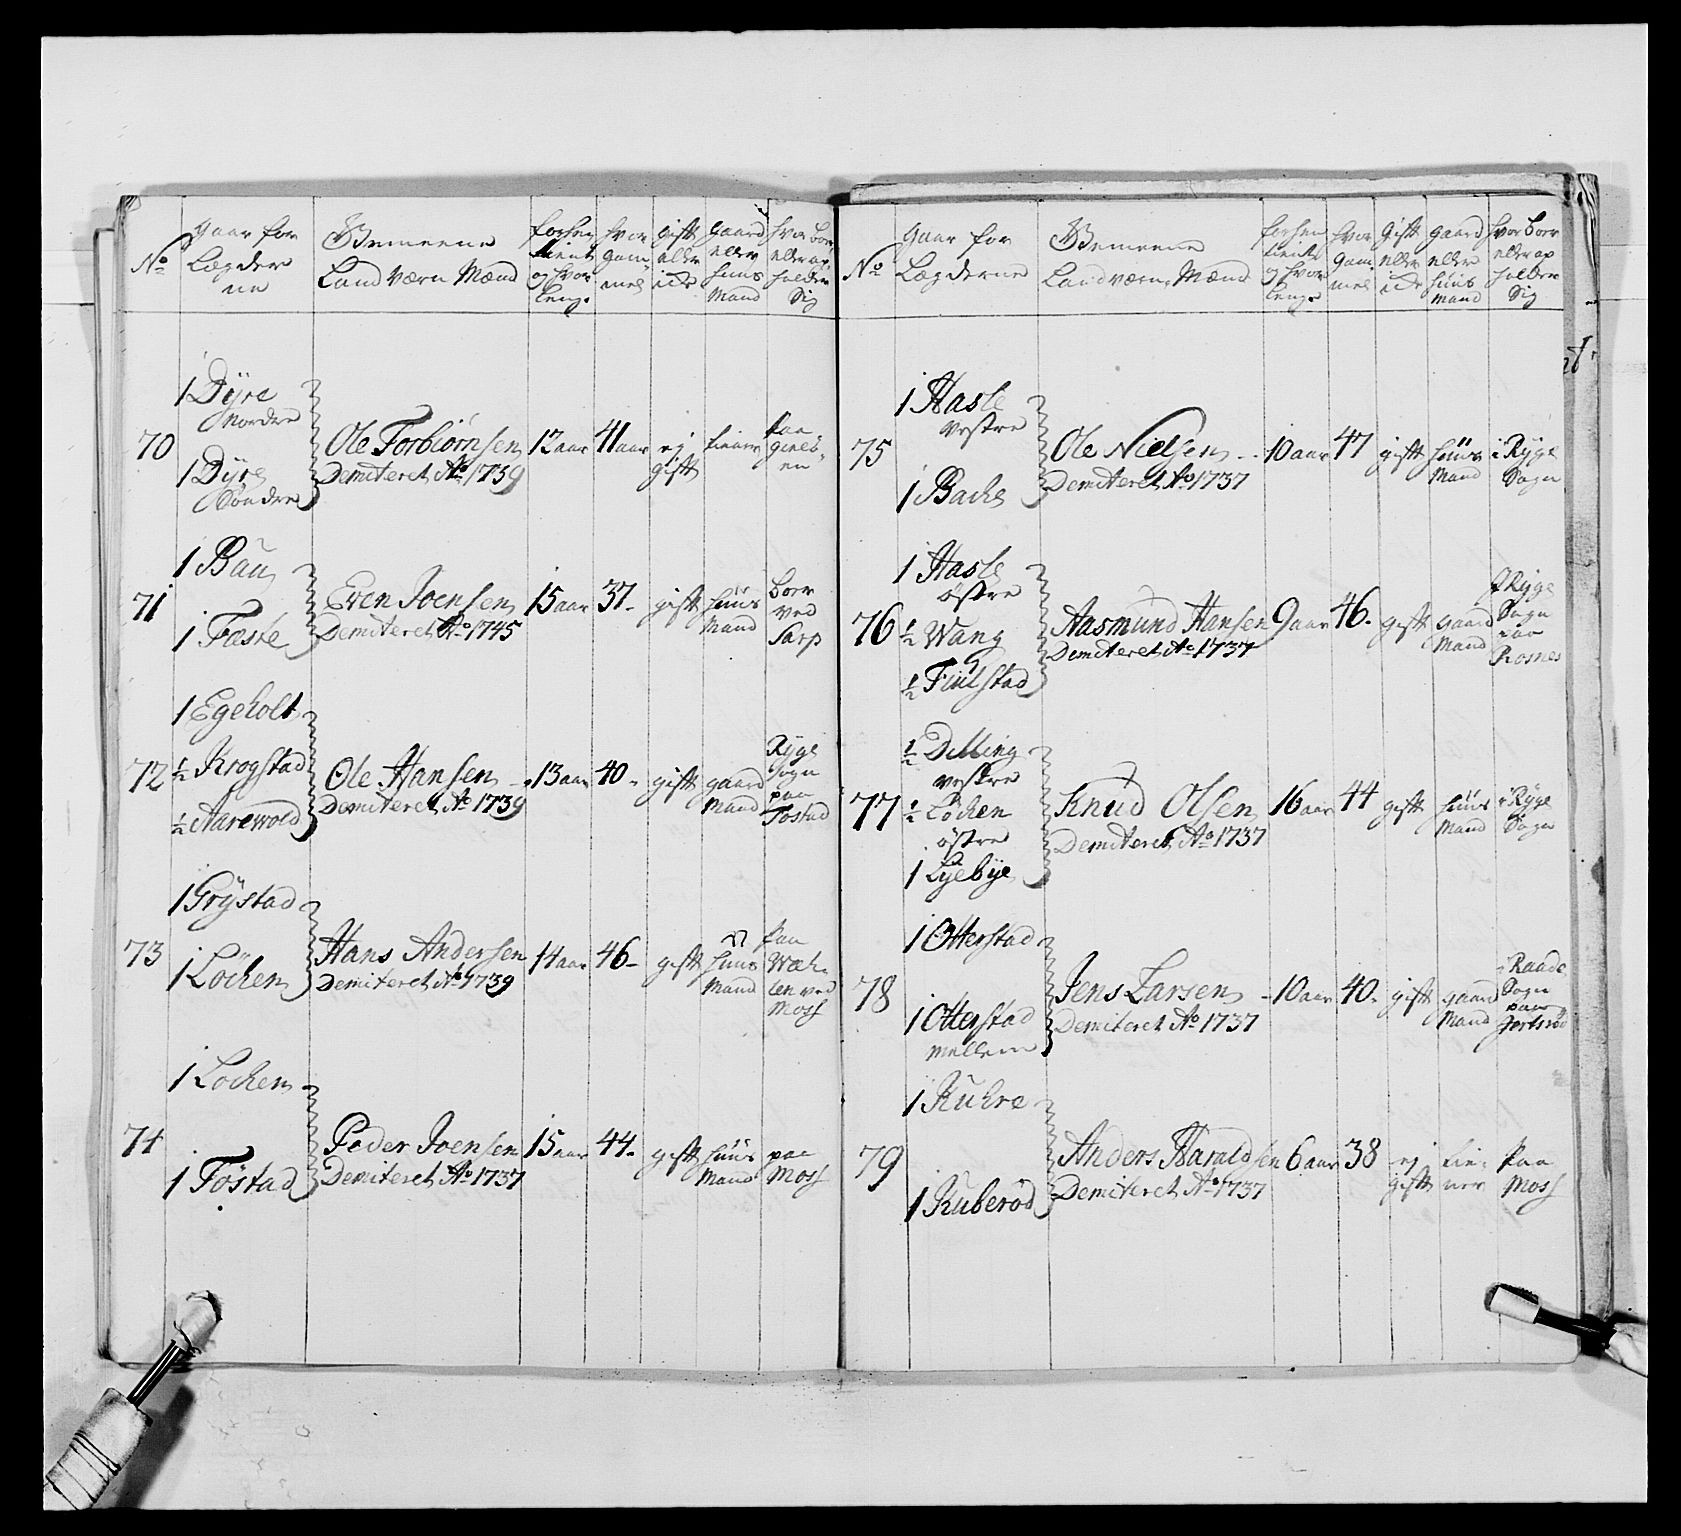 No
gaar for
Lægder
ne
Gemeene
Land Værn Mænd
forhen
tient
og hvor
lenge
hvor
gam
mel
gift
eller
icke
gaard
eller
huus
Mand
hvor boer
eller op
holder
Sig
70
1 Dyre
Nordre
1 Dyre
Søndre
Ole Torbiørnsen
Demiteret Ao 1739
12 aar
41 aar
ej
gift
tiener
paa
71
1 Bau
1 Fæste
Even Joensen
Demiteret Ao 1745
15 aar
37
gift
huus
Mand
boer
ved
Sarp
72
1 Egeholt
1/2 Krogstad
1/2 Aarewold
Ole Hansen
Demiteret Ao 1739
13 aar
40
gift
gaard
Mand
Ryge
Sogn
paa
Tostad
73
1 Grystad
1 Løchen
Hans Andersen
Demiteret Ao 1739
14 aar
46
gift
huus
Mand
paa
ved
Moss
74
1 Lochen
1 Tøstad
Peder Joensen
Demiteret Ao 1737
15 aar
44
gift
huus
Mand
paa
Moss
No
gaar for
Lægderne
Gemeene
Land Værns Mænd
forhen
tient
og hvor
lenge
hvor
gam
mel
gift
eller
icke
gaard
eller
huus
Mand
hvor boer
eller op
holder
Sig
75
1 Hasle
vestre
1 Bache
Ole Nielsen
Demiteret Ao 1737
10 aar
47
gift
huus
Mand
i Ryge
Sogn
76
1 Hasle
østre
1/2 Wang
1/2 Fiulstad
Aasmund Hansen
Demiteret Ao 1737
9 aar
46
gift
gaard
Mand
i Ryge
Sogn
paa
Rosnes
77
1/2 Dilling
vestre
1/2 Løchen
østre
1 Lyebye
Knud Olsen
Demiteret Ao 1737
16 aar
44
gift
huus
Mand
i Ryge
Sogn
78
1 Otterstad
1 Otterstad
mellem
Jens Larsen
Demiteret Ao 1737
10 aar
40
gift
gaard
Mand
i Raade
Sogn
paa
79
1 Kuhre
1 Kuberød
Anders Haraldsen
Demiteret Ao 1737
6 aar
38
ej
gift
tie
ner
paa
Moss